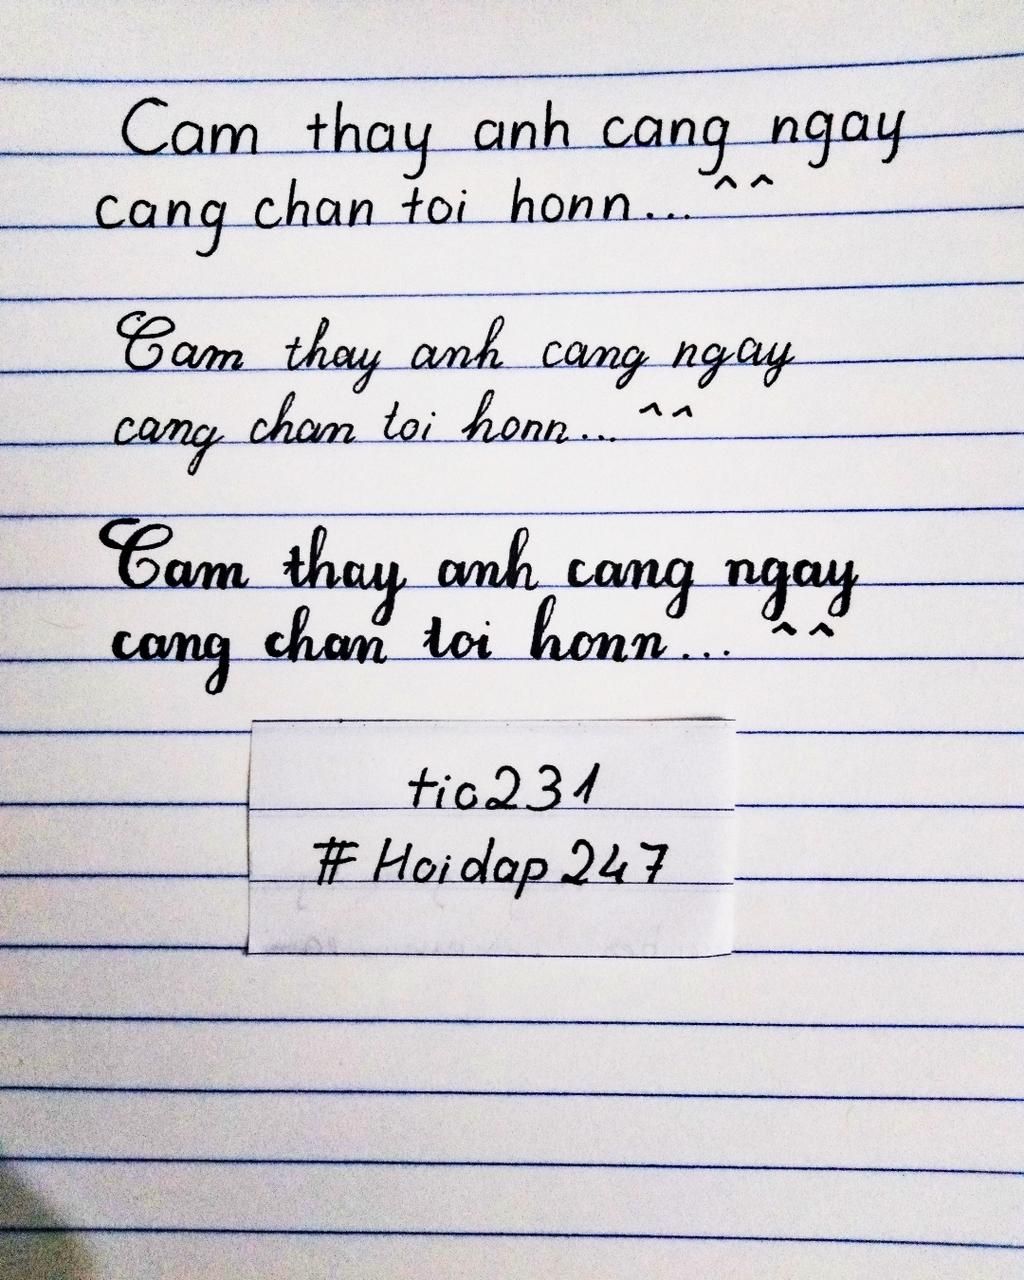 Cam thay anh cang ngay
cang chan toi honn... ^^
Cam thay anh cang ngay
cang chan toi honn... ^^
Cam thay anh cang ngay
cang chan toi honn... ^^
tio231
#Hoidap247